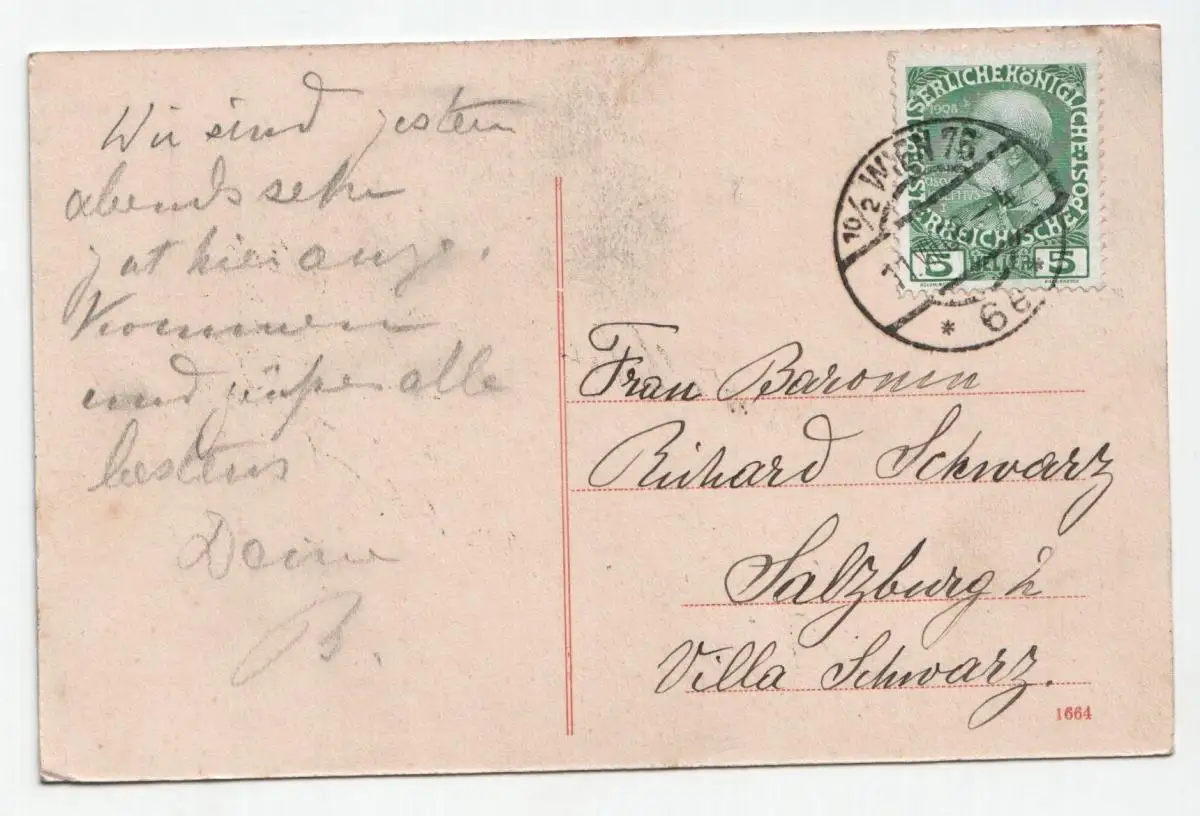 Wir sind gestern
abends sehr
gut hier ange-
kommen
und grüßen alle
bestens
Deine
B.
KAISERLICHE KÖNIGLICHE
ÖSTERREICHISCHE
1908
5 HELLER 5
10/2 WIEN 76
* 6e *
Frau Baronin
Richard Schwarz
Salzburg
Villa Schwarz.
1664